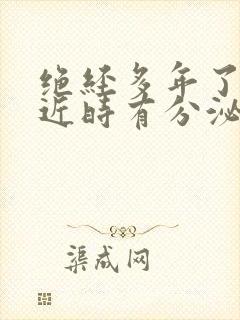 绝经多年了
近时有分泌
渠成网